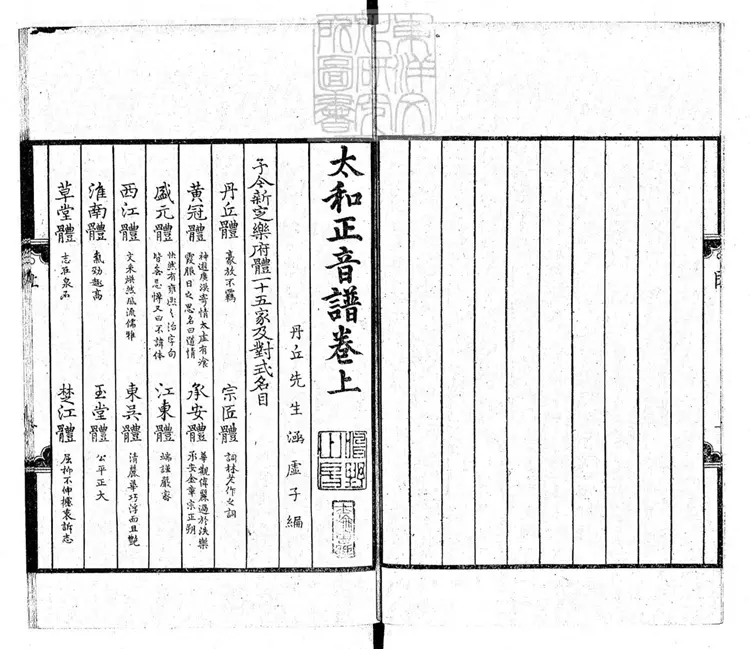 東洋文
化研究
所圖書
太和正音譜卷上
丹丘先生涵虛子編
予今新定樂府體一十五家及對式名目
丹丘體 豪放不羈 宗匠體 詞林老作之詞
黃冠體 神遊廣漠寄情太虛有飡
霞服日之思名曰道情
承安體 華觀偉麗過於泆樂
承安金章宗正朔
盛元體 快然有雍熙之治字句
皆無忌憚又曰不諱體
江東體 端謹嚴密
西江體 文采煥然風流儒雅 東吳體 清麗華巧浮而且艷
淮南體 氣勁趣高 玉堂體 公平正大
草堂體 志在泉石 楚江體 屈抑不伸攄衷訴志